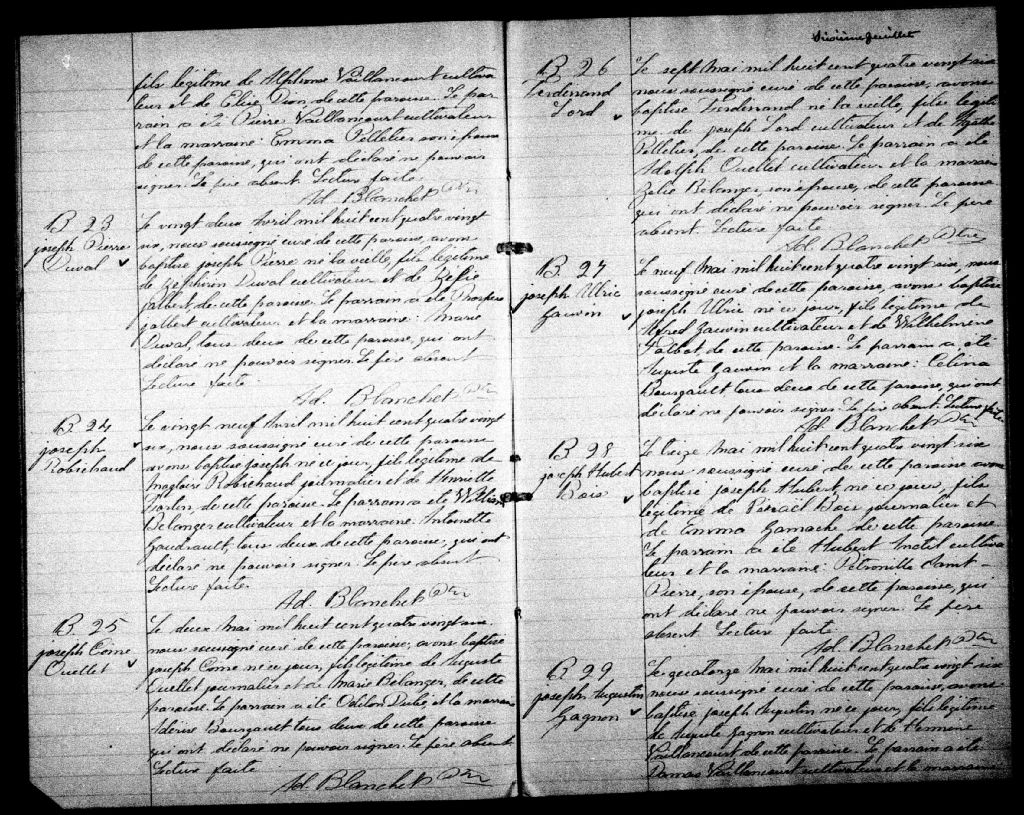 fils légitime de Alphonse Vaillancourt cultiva
teur et de Elise Dion, de cette paroisse. Le par
rain a été Pierre Vaillancourt cultivateur
et la marraine: Emma Pelletier son épouse
de cette paroisse, qui ont déclaré ne pouvoir
signer. Le père absent. Lecture faite.
Ad. Blanchet Ptre
B 23
joseph Pierre
Duval
Le vingt deux Avril mil huit cent quatre vingt
six, nous soussigné curé de cette paroisse, avons
baptisé joseph Pierre né la veille, fils légitime
de Zephirin Duval cultivateur et de Zélie
jalbert, de cette paroisse. Le parrain a été Prospère
jalbert cultivateur et la marraine: Marie
Duval, tous deux de cette paroisse, qui ont
déclaré ne pouvoir signer. Le père absent
Lecture faite.
Ad. Blanchet Ptre
B 24
joseph
Robichaud
Le vingt neuf Avril mil huit cent quatre vingt
six, nous soussigné curé de cette paroisse
avons baptisé joseph né ce jour, fils légitime de
Magloire Robichaud journalier et de Henriette
Fortin, de cette paroisse. Le parrain a été
Belanger cultivateur et la marraine: Antoinette
Gaudrault, tous deux de cette paroisse, qui ont
déclaré ne pouvoir signer. Le père absent
Lecture faite.
Ad. Blanchet Ptre
B. 25
joseph Come
Ouellet
Le deux Mai mil huit cent quatre vingt six
nous soussigné curé de cette paroisse, avons baptisé
joseph Come né ce jour, fils légitime de Auguste
Ouellet journalier et de Marie Belanger, de cette
paroisse. Le parrain a été Odilon Dubé, et la marraine
Adérise Bourgault tous deux de cette paroisse
qui ont déclaré ne pouvoir signer. Le père absent
Lecture faite
Ad. Blanchet Ptre
Sixième feuillet
B 26
Ferdinand
Lord
Le sept Mai mil huit cent quatre vingt six
nous soussigné curé de cette paroisse, avons
baptisé Ferdinand né la veille, fils légiti
me de joseph Lord cultivateur et de
Pelletier, de cette paroisse. Le parrain a été
Adolph Ouellet cultivateur et la marraine
Zélie Bélanger, son épouse, de cette paroisse
qui ont déclaré ne pouvoir signer. Le père
absent. Lecture faite
Ad. Blanchet Ptre
B 27
joseph Ulric
Gauvin
Le neuf Mai mil huit cent quatre vingt six, nous
soussigné curé de cette paroisse, avons baptisé
joseph Ulric né ce jour, fils légitime de
Alfred Gauvin cultivateur et de Wilhelmine
Talbot, de cette paroisse. Le parrain a été
Auguste Gauvin et la marraine: Celina
Bourgault tous deux de cette paroisse, qui ont
déclaré ne pouvoir signer. Le père absent. Lecture faite
Ad. Blanchet Ptre
B 28
joseph Hubert
Bois
Le treize Mai mil huit cent quatre vingt six
nous soussigné curé de cette paroisse avons
baptisé joseph Hubert, né ce jour, fils
légitime de Israël Bois journalier et
de Emma Gamache de cette paroisse.
Le parrain a été Hubert Métil cultiva
teur et la marraine: Petronille Saint-
Pierre, son épouse, de cette paroisse, qui
ont déclaré ne pouvoir signer. Le père
absent Lecture faite
Ad. Blanchet Ptre
B 29
joseph Augustin
Gagnon
Le quatorze Mai mil huit cent quatre vingt six
nous soussigné curé de cette paroisse, avons
baptisé joseph Augustin né ce jour, fils légitime
de Auguste Gagnon cultivateur et de Hermine
Vaillancourt de cette paroisse. Le parrain a été
Damas Vaillancourt cultivateur et la marraine